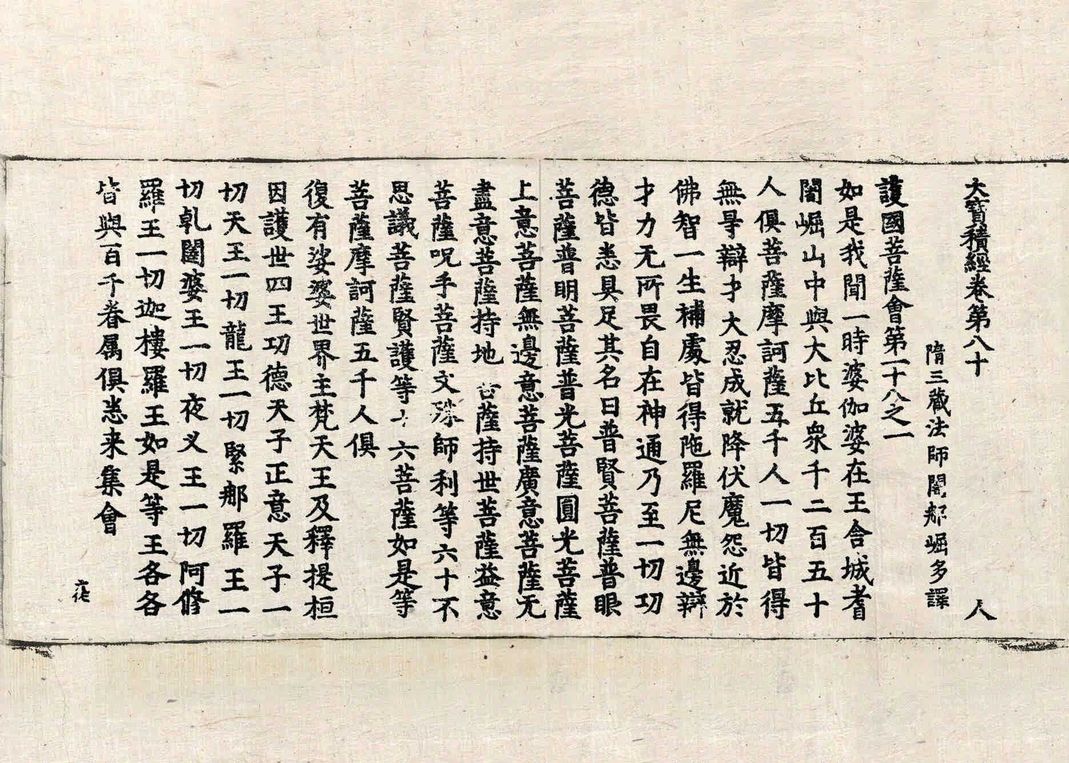 大寳積經卷第八十
人
隋三藏法師闍郍崛多譯
護國菩薩會第十八之一
如是我聞一時婆伽婆在王舍城耆
闍崛山中與大比丘衆千二百五十
人俱菩薩摩訶薩五千人一切皆得
無㝵辯才大忍成就降伏魔怨近於
佛智一生補處皆得陁羅尼無邊辯
才力无所畏自在神通乃至一切功
德皆悉具足其名曰普賢菩薩普眼
菩薩普明菩薩普光菩薩圓光菩薩
上意菩薩無邊意菩薩廣意菩薩无
盡意菩薩持地菩薩持世菩薩益意
菩薩呪手菩薩文殊師利等六十不
思議菩薩賢護等十六菩薩如是等
菩薩摩訶薩五千人俱
復有娑婆世界主梵天王及釋提桓
因護世四王功德天子正意天子一
切天王一切龍王一切緊郍羅王一
切乹闥婆王一切夜叉王一切阿脩
羅王一切迦樓羅王如是等王各各
皆與百千眷属俱悉来集會